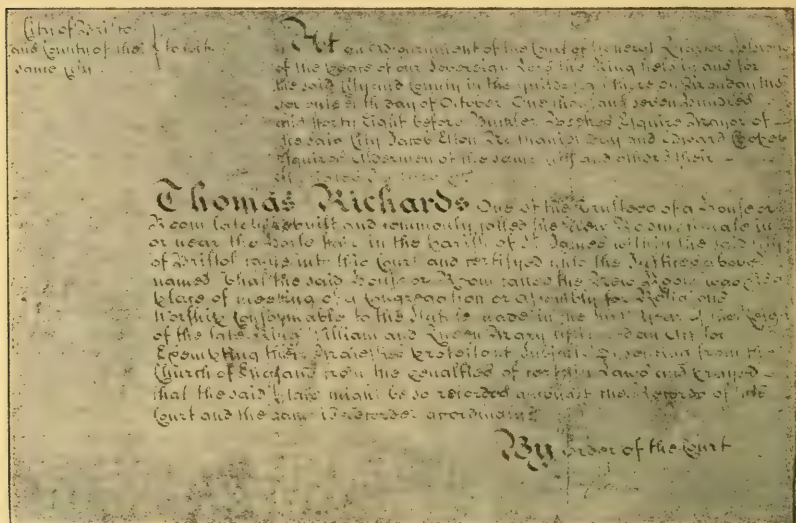 City of Bristol
and County of the } to wit
same City
At an adjournment of the Court of General Quarter Sessions
of the Peace of our Sovereign Lord the King held in and for
the said City and County in the there on Monday the
day of October One thousand seven hundred
and forty Eight before Esquire Mayor of
the said City Jacob Elton and Edward Cooper
Esquires Aldermen of the same City and others their

Thomas Richards One of the Trustees of a House or
Room lately built and commonly called the New Room situate in
or near the Horse Fair in the Parish of St James within the said City
of Bristol came into this Court and certifyed unto the Justices above
named That the said House or Room called the New Room was
Place of meeting of a Congregation or Assembly for Religious
Worship Conformable to the Act made in the first Year of the Reign
of the late King William and Queen Mary an Act for
Exempting their Majesties Protestant Subjects Dissenting from the
Church of England from the Penalties of certain Laws and prayed
that the said Place might be so recorded amongst the Records of this
Court and the same is recorded accordingly
By order of the Court